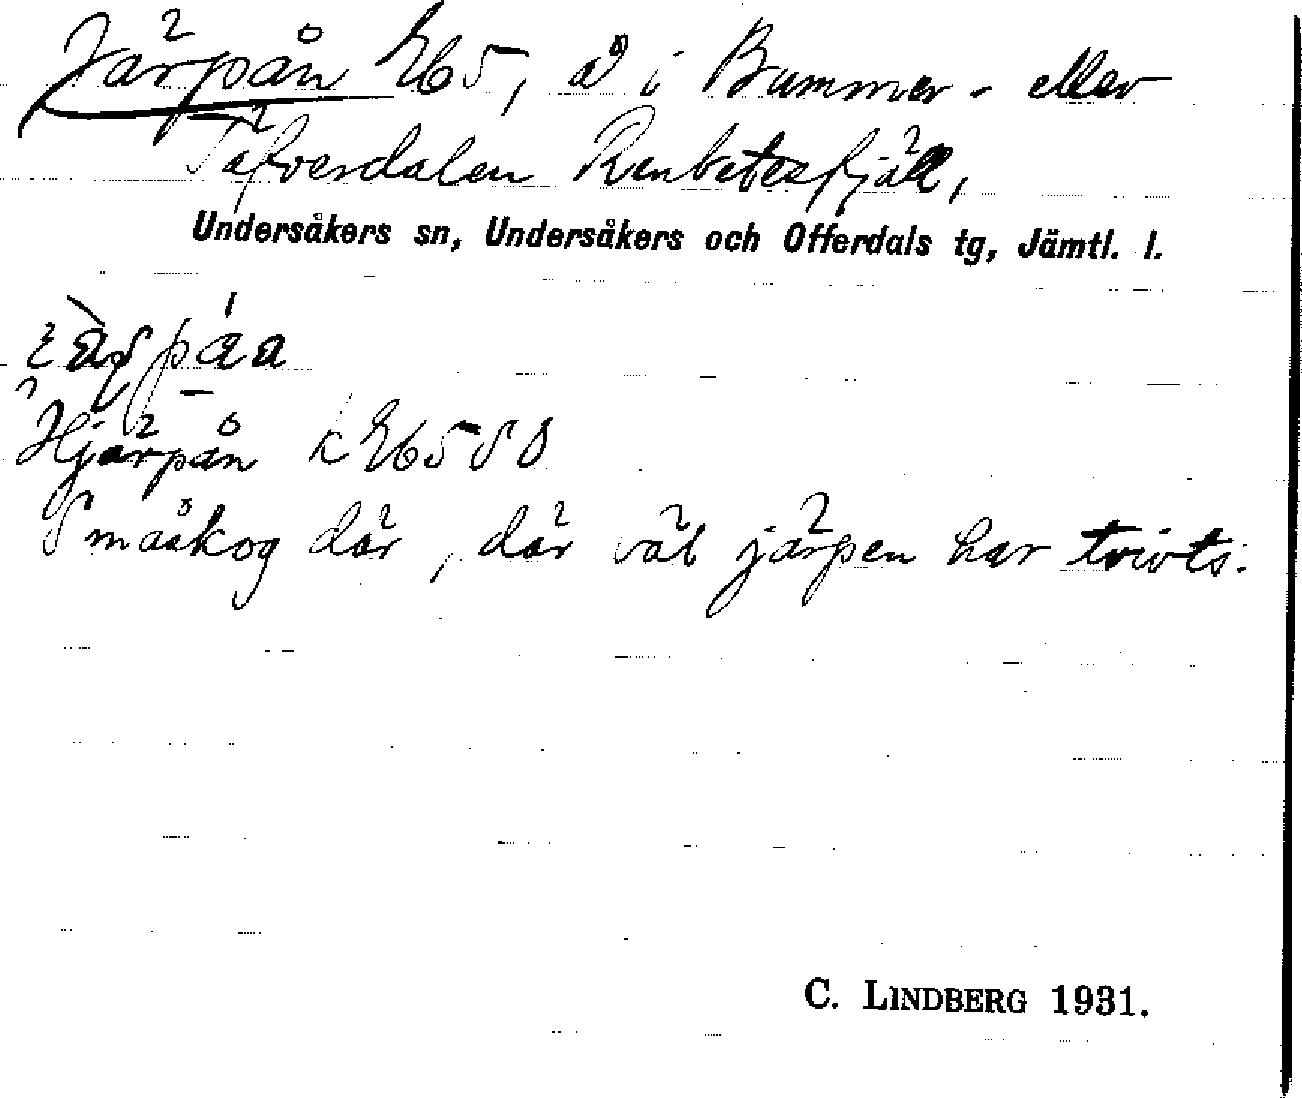 Järpån Eb5, å i Bummer- eller
Täfverdalen Renbetesfjäll,
Undersåkers sn, Undersåkers och Offerdals tg, Jämtl. l.
Hjärpån k Eb5 SO
Småskog där, där väl järpen har trivts.
C. LINDBERG 1931.